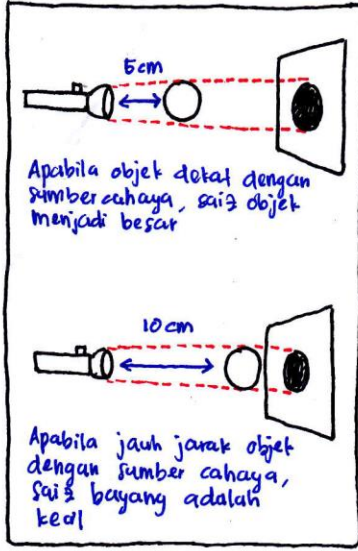 5cm
Apabila objek dekat dengan
sumber cahaya, saiz objek
menjadi besar
10 cm
Apabila jauh jarak objek
dengan sumber cahaya,
saiz bayang adalah
kecil